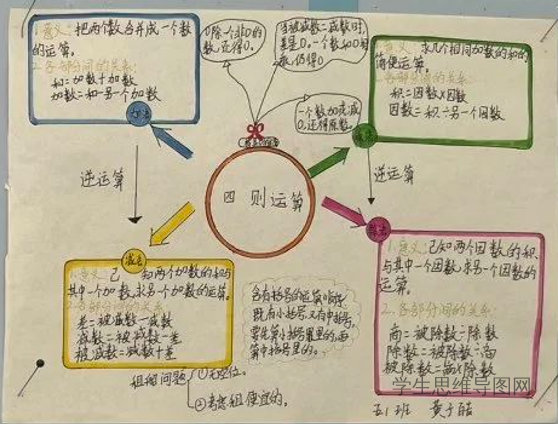 1.意义:把两个数合并成一个数
的运算。
2.各部分间的关系:
和=加数+加数
加数=和-另一个加数
加法
0除一个非0的
数,还得0。
当被减数=减数时
差是0。一个数和0相
乘,仍得0
一个数加或减
0,还得原数。
意义:求几个相同加数的和的
简便运算
各部分间的关系:
积=因数×因数
因数=积÷另一个因数
乘法
四则运算
逆运算
逆运算
减法
1.意义:已知两个加数的和与
其中一个加数,求另一个加数的运算。
2.各部分
差=被减数-减数
减数=被减数-差
被减数=减数+差
含有括号的运算顺序
既有小括号,又有中括号,
要先算小括号里的,再
算中括号里的。
除法
1.意义:已知两个因数的积
与其中一个因数,求另一个因数的
运算。
2.各部分间的关系:
商=被除数÷除数
除数=被除数÷商
被除数=商×除数
租船问题
①无空位。
②考虑租便宜的。
学生思维导图网
五1班